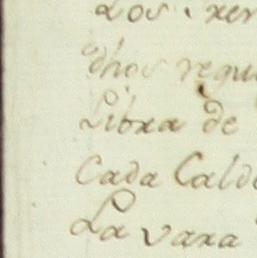 Los
dhos regu
Libra de
Cada Calde
La vara